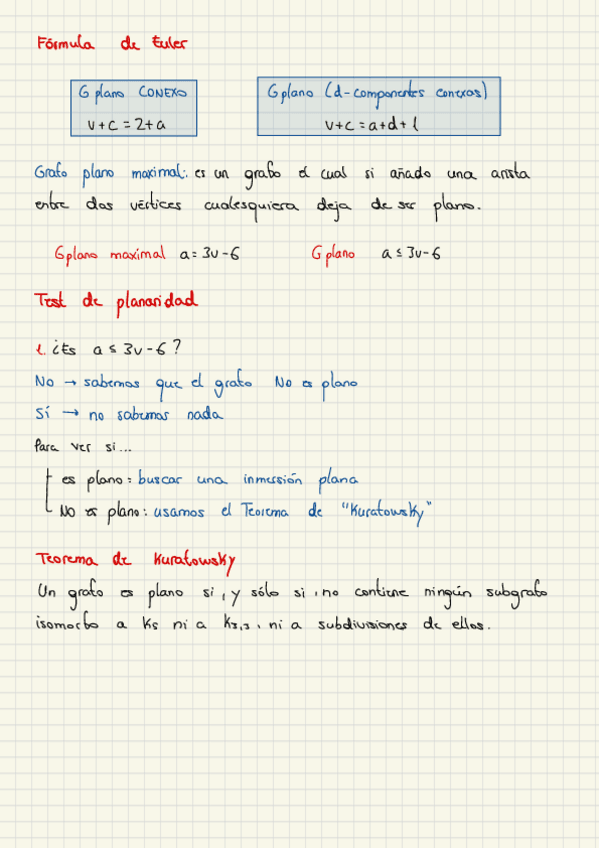 Fórmula de Euler
G plano CONEXO
v+c = 2+a
G plano (d-componentes conexas)
v+c = a+d+1
Grafo plano maximal: es un grafo el cual si añado una arista
entre dos vértices cualesquiera deja de ser plano.
G plano maximal a = 3v-6
G plano a ≤ 3v-6
Test de planaridad
1. ¿Es a ≤ 3v-6?
No → sabemos que el grafo No es plano
Sí → no sabemos nada
Para ver si...
es plano: buscar una inmersión plana
No es plano: usamos el Teorema de "Kuratowsky"
Teorema de Kuratowsky
Un grafo es plano si, y sólo si, no contiene ningún subgrafo
isomorfo a K5 ni a K3,3, ni a subdivisiones de ellos.